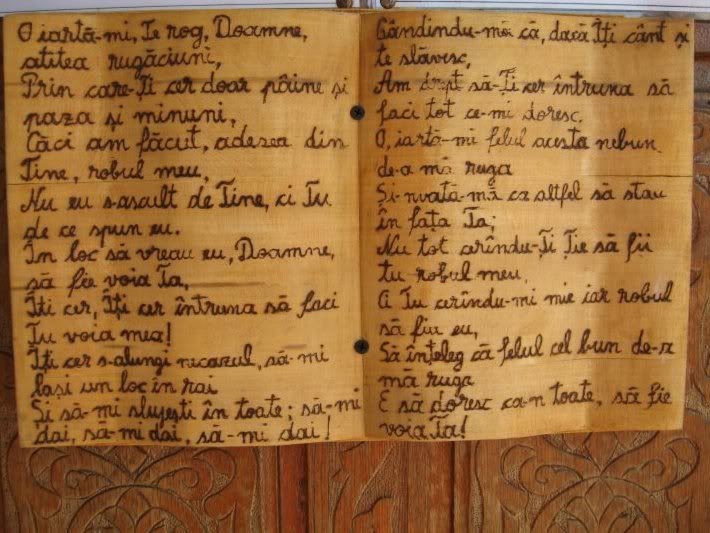 O iartă-mi, Te rog, Doamne,
atîtea rugăciuni,
Prin care-Ți cer doar pâine și
paza și minuni,
Căci am făcut, adesea din
Tine, robul meu,
Nu eu s-ascult de Tine, ci Tu
de ce spun eu.
În loc să vreau eu, Doamne,
să fie voia Ta,
Îți cer, Îți cer întruna să faci
Tu voia mea!
Îți cer s-alungi necazul, să-mi
lași un loc în rai
Și să-mi slujești în toate; să-mi
dai, să-mi dai, să-mi dai!
Gândindu-mă că, dacă Îți cânt și
te slăvesc,
Am drept să-Ți cer întruna să
faci tot ce-mi doresc.
O, iartă-mi felul acesta nebun
de-a mă ruga
Și-nvață-mă ca altfel să stau
în fața Ta;
Nu tot cerîndu-Ți Ție să fii
tu robul meu,
Ci Tu cerîndu-mi mie iar robul
să fiu eu,
Să înțeleg că felul cel bun de-a
mă ruga
E să doresc ca-n toate, să fie
voia Ta!